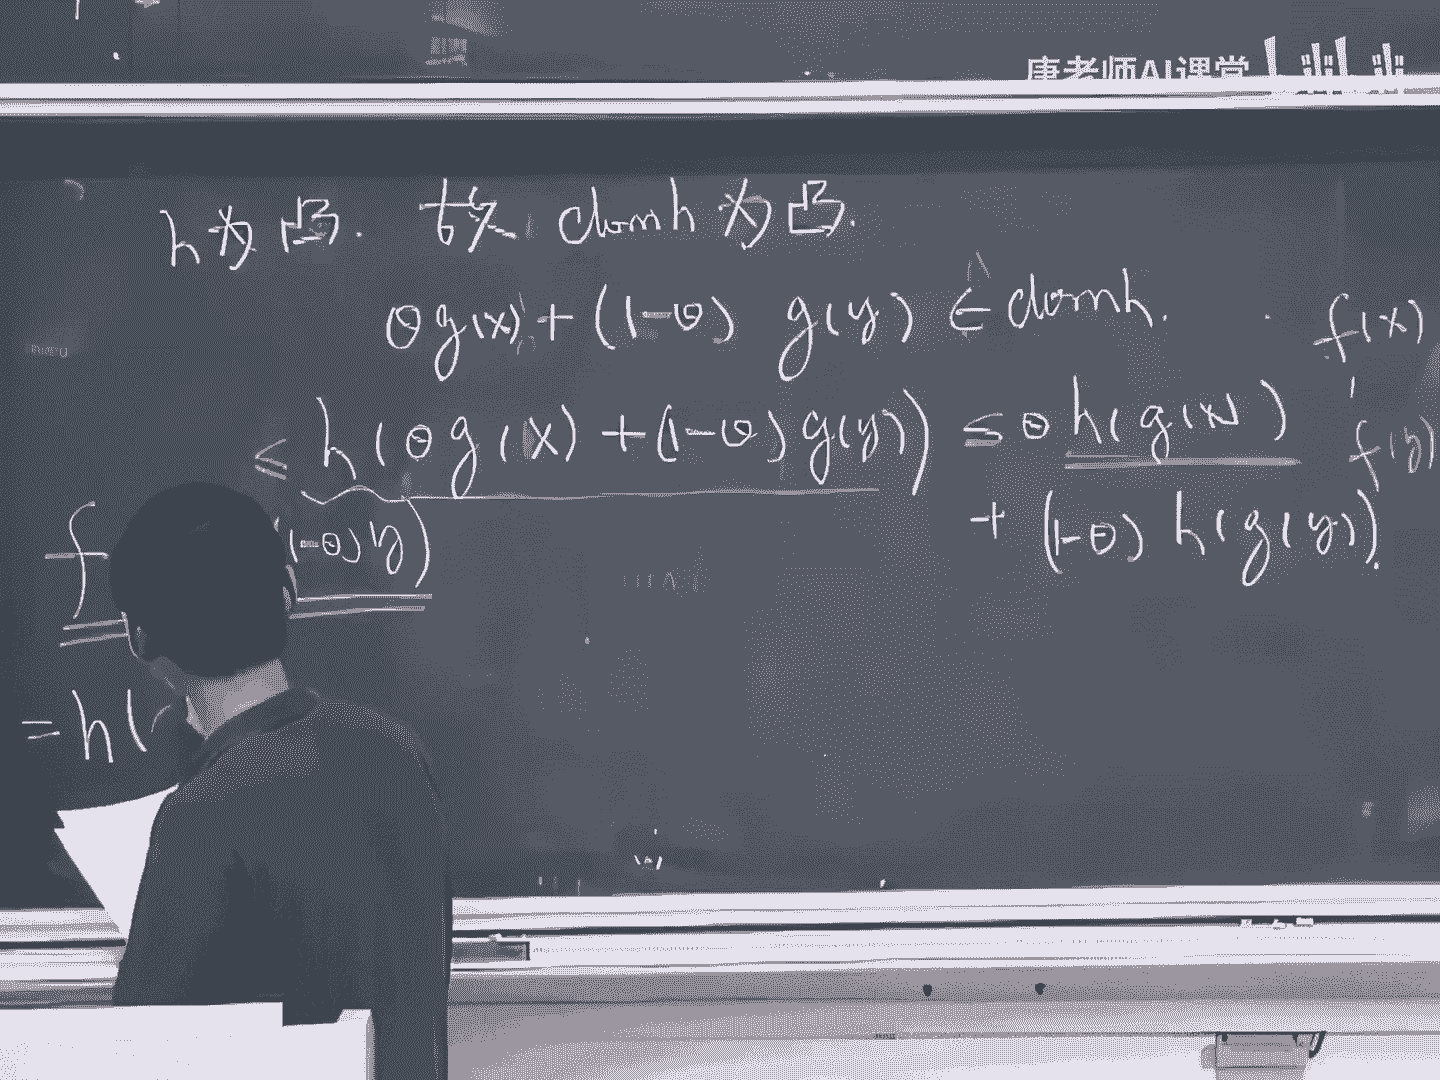 唐老师AI课堂
h为凸. 故 domh为凸.
θg(x)+(1-θ) g(y) ∈ domh.
f(x)
≤ h(θg(x)+(1-θ)g(y)) ≤ θh(g(x))
f(y)
+ (1-θ) h(g(y)).
f
(1-θ)y)
=h(